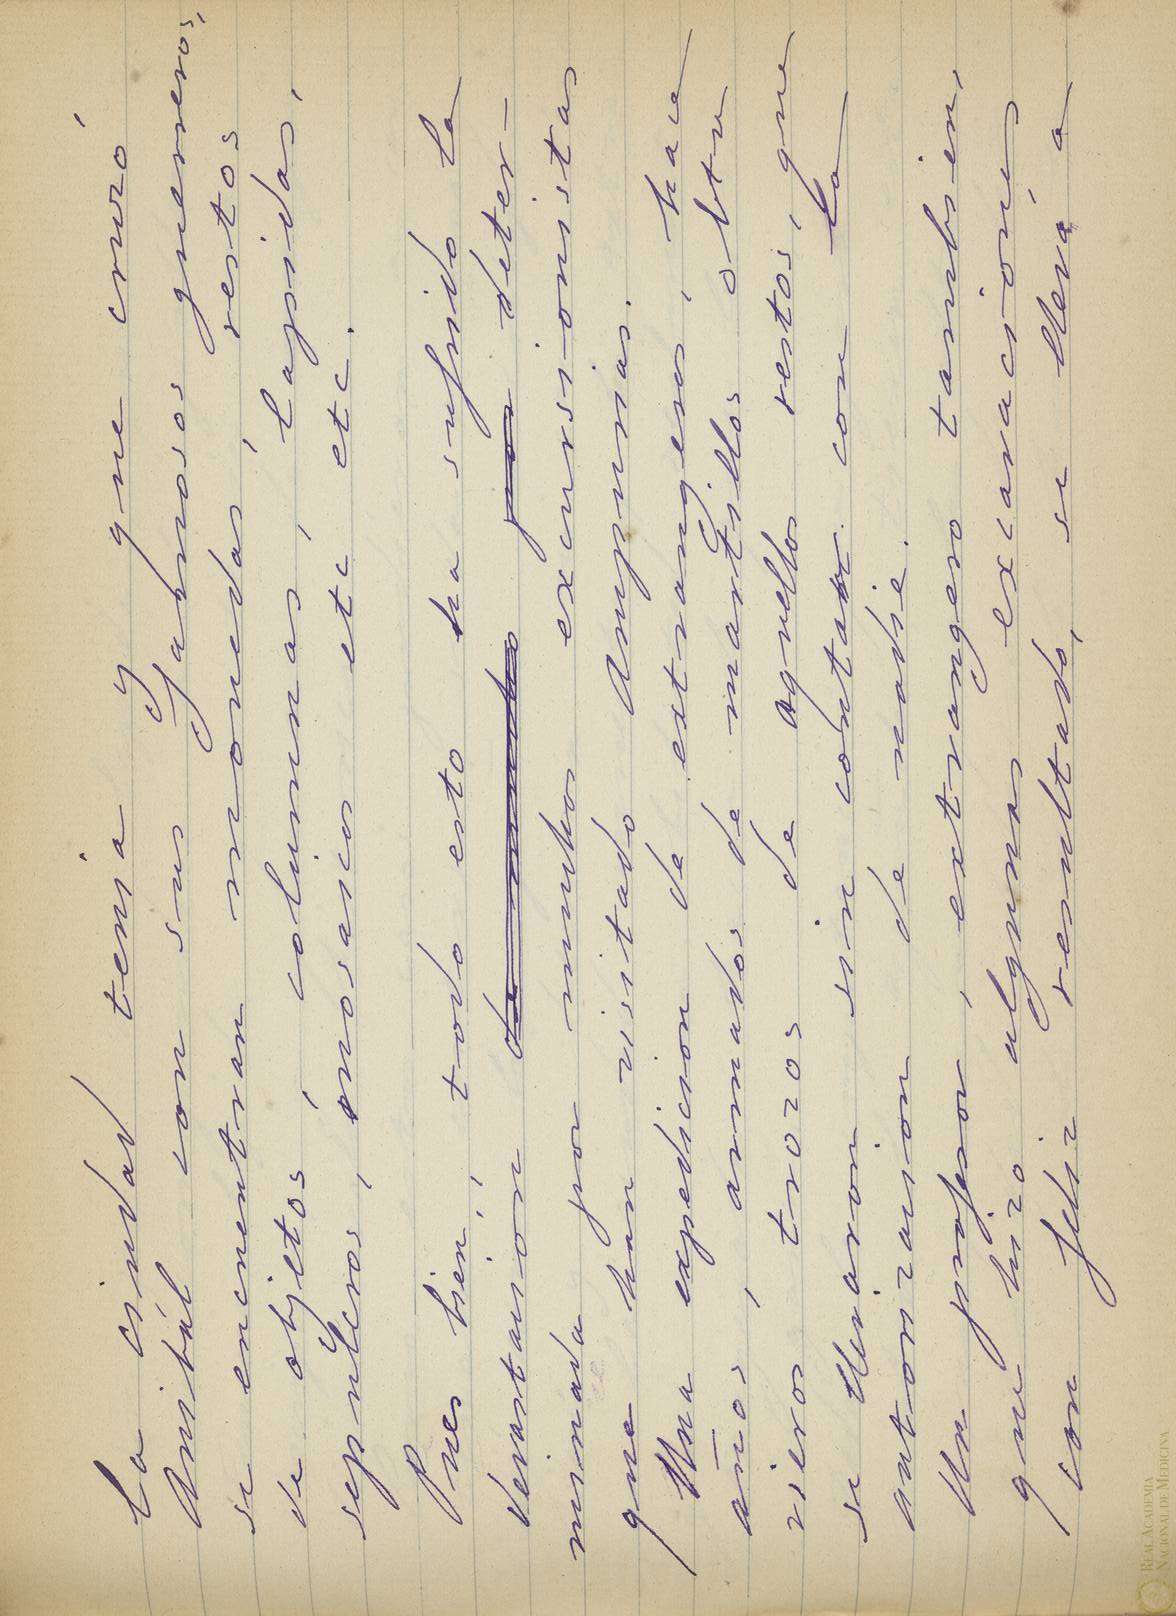 La ciudad tenia y que cruzó
Anibál con sus famosos guerreros,
se encuentran monedas, restos
de objetos, colunnas, lapidas,
sepulcros, mosaicos etc etc.
Pues bien, todo esto ha sufrido la
devastacion de mucho por deter-
minada por muchos excursionistas
que han visitado Ampurias.
Una expedicion de extrangeros, hace
años, armados de martillos obtu
vieron trozos de aquellos restos, que
se llevaron sin contar con la
autorizacion de nadie.
Un profesor, extrangero tambien,
que hizo algunas excavaciones
con feliz resultado, se llevó a
REAL ACADEMIA
NACIONAL DE MEDICINA